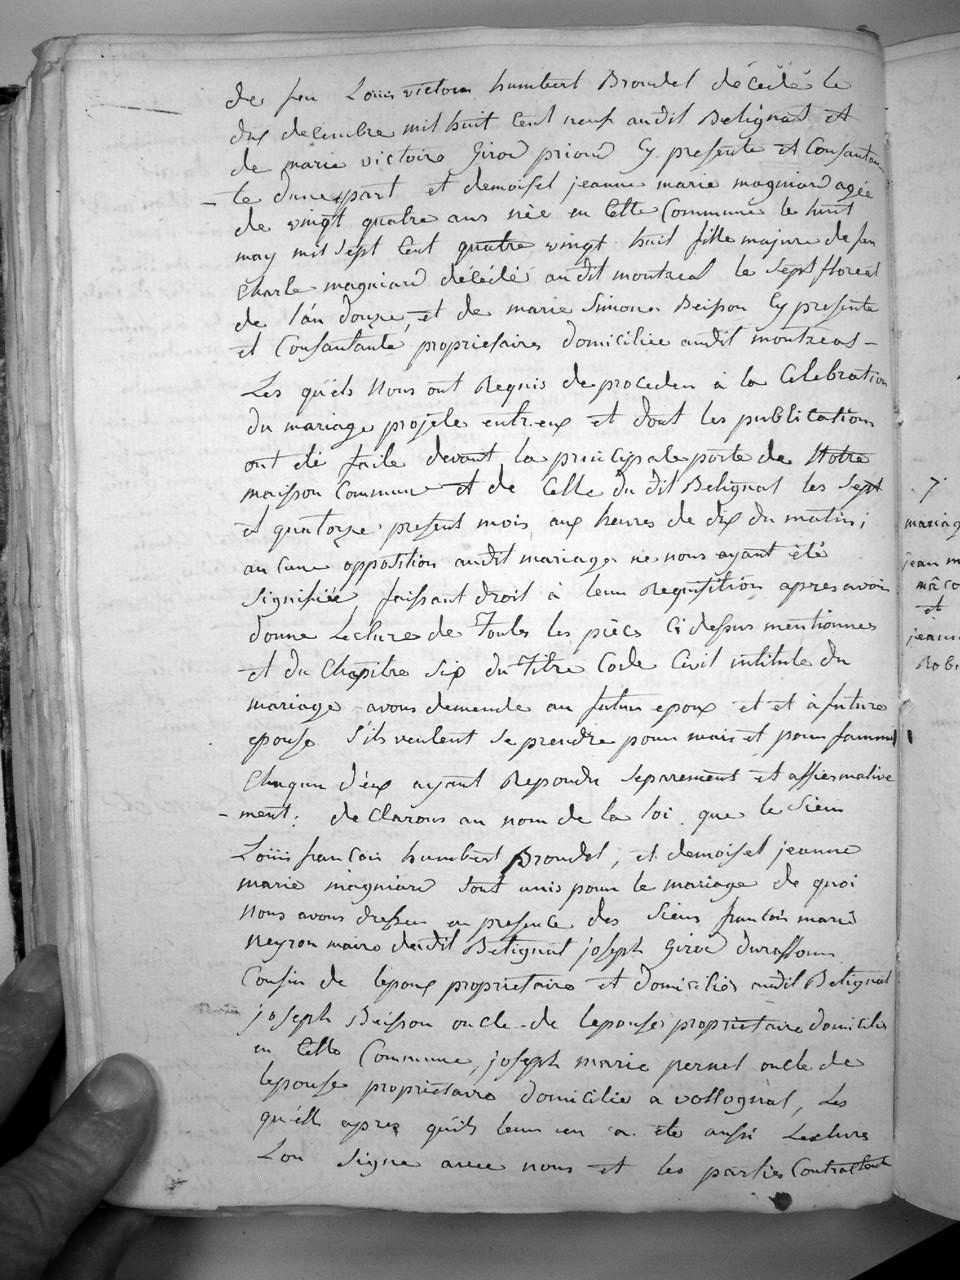 de feu Louis victor humbert Brondel décédé le
dix decembre mil huit Cent neuf audit Belignat et
de marie victoire Girod prioud Cy presente et Consantan
- te d'une part et demoisel jeanne marie magniard agée
de vingt quatre ans née en Cette Commune le huit
may mil sept Cent quatre vingt huit fille majure de feu
Charle magniard décédé audit montreal le sept floréal
de l'an douze, et de marie Simone Beisson Cy presente
et Consantante propriétaires domiciliée audit montreal -
Les quéls Nous ont Requis de proceder à la Celebration
du mariage projele entreux et dont les publications
ont été faite devant la principale porte de Notre
maison Commune et de Celle du dit Belignat les Sept
et quatorze present mois aux heures de dix du matin;
aucune opposition audit mariage ne nous ayant été
Signifiée faissant droit à leur Requisition apres avoir
donne Lecture de toutes les pièces Ci dessus mentionnes
et du Chapitre Six du Titre Code Civil intitule du
mariage avons demende au futur epoux et et à future
epouse S'ils veulent se prendre pour mari et pour famme
Chaqun d'éux ayant Repondu Separement et affiermative
- ment: de Clarons au nom de la loi que le Sieur
Loüis francois humbert Brondel, et demoisel jeanne
marie magniard Sont unis pour le mariage de quoi
Nous avons dresser en presence des Sieurs francois marie
Neyron maire dudit Belignat joseph Girod
Cousin de lepoux propriétaire et domiciliés audit Belignat
joseph Beisson oncle de lepouse propriétaire domicilié
en Cette Commune, joseph marie pernet oncle de
lepouse propriétaire domicilié a vollognat, Les
quéll apres quils leur en a ete aussi Lecture
Lon Signe avec nous et les parties Contractant
7.
mariag
jean m
et
jeann
Robi